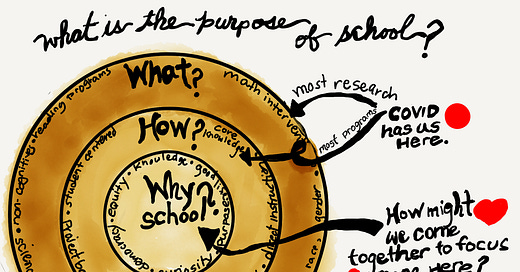 what is the purpose of school?
What?
non-cognitive • reading programs
math interven
science
How?
student centered
core knowledge
Project
direct instruct
gender
race
Why school?
equity • knowledge • good life
purpose
democracy
curiosity
most research
most programs
COVID
has us
Here.
How might
we come
together to focus
Here?